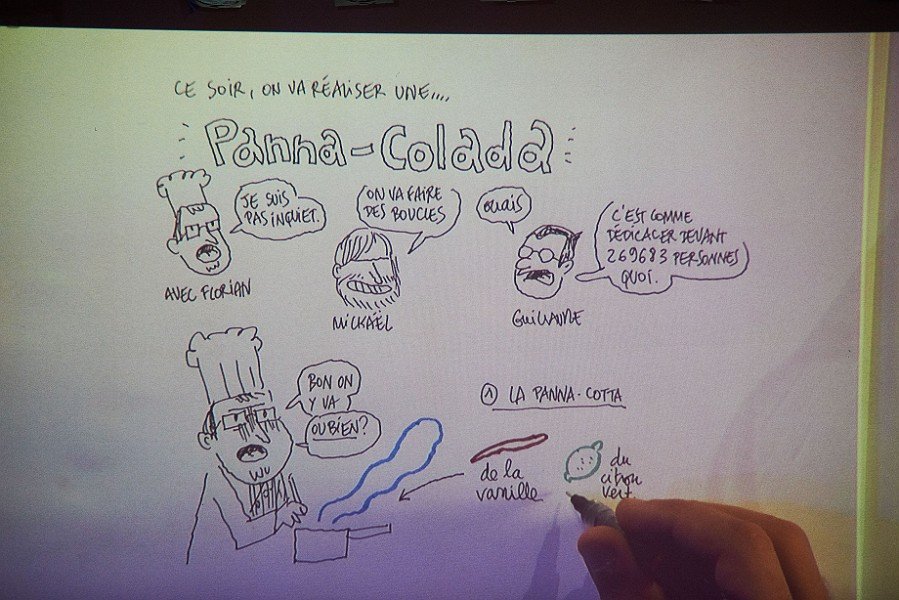 CE SOIR, ON VA RÉALISER UNE....
Panna-Colada
JE SUIS
PAS INQUIET.
AVEC FLORIAN
ON VA FAIRE
DES BOUCLES
MICKAËL
OUAIS
C'EST COMME
DÉDICACER DEVANT
269683 PERSONNES
QUOI.
GUILLAUME
BON ON
Y VA
OU BIEN?
① LA PANNA-COTTA
de la
vanille
du
citron
vert